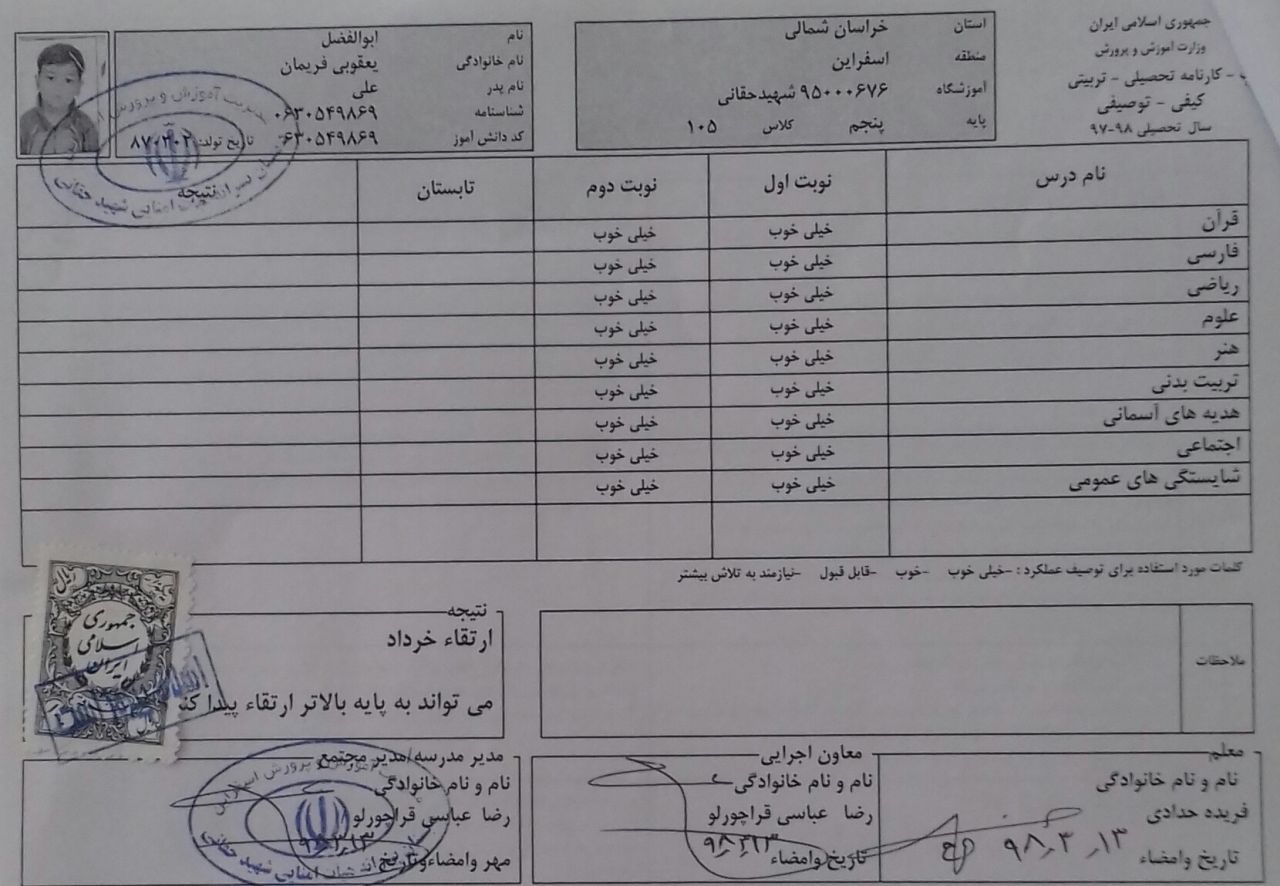 جمهوری اسلامی ایران
وزارت آموزش و پرورش
کارنامه تحصیلی - تربیتی
کیفی - توصیفی
سال تحصیلی ۹۸-۹۷
استان خراسان شمالی
منطقه اسفراین
آموزشگاه ۹۵۰۰۰۶۷۶ شهیدحقانی
پایه پنجم کلاس ۱۰۵
نام ابوالفضل
نام خانوادگی یعقوبی فریمان
نام پدر علی
شناسنامه ۰۶۳۰۵۴۹۸۶۹
کد دانش آموز ۰۶۳۰۵۴۹۸۶۹ تاریخ تولد: ۸۷۰۲۰۲
نام درس نوبت اول نوبت دوم تابستان نتیجه
قرآن خیلی خوب خیلی خوب
فارسی خیلی خوب خیلی خوب
ریاضی خیلی خوب خیلی خوب
علوم خیلی خوب خیلی خوب
هنر خیلی خوب خیلی خوب
تربیت بدنی خیلی خوب خیلی خوب
هدیه های آسمانی خیلی خوب خیلی خوب
اجتماعی خیلی خوب خیلی خوب
شایستگی های عمومی خیلی خوب خیلی خوب
کلمات مورد استفاده برای توصیف عملکرد : -خیلی خوب -خوب -قابل قبول -نیازمند به تلاش بیشتر
ملاحظات
نتیجه
ارتقاء خرداد
می تواند به پایه بالاتر ارتقاء پیدا کند
جمهوری
اسلامی
ایران
ریال
معلم
نام و نام خانوادگی
فریده حدادی
تاریخ وامضاء ۹۸٫۳٫۱۳
معاون اجرایی
نام و نام خانوادگی
رضا عباسی قراچورلو
تاریخ وامضاء ۹۸٫۳٫۱۳
مدیر مدرسه/مدیر مجتمع
نام و نام خانوادگی
رضا عباسی قراچورلو
۹۸٫۳٫۱۳
مهر وامضاءوتاریخ